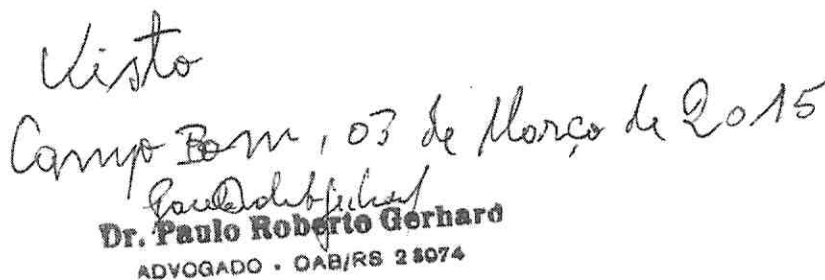 Visto
Campo Bom, 03 de Março de 2015
Dr. Paulo Roberto Gerhard
ADVOGADO - OAB/RS 28074